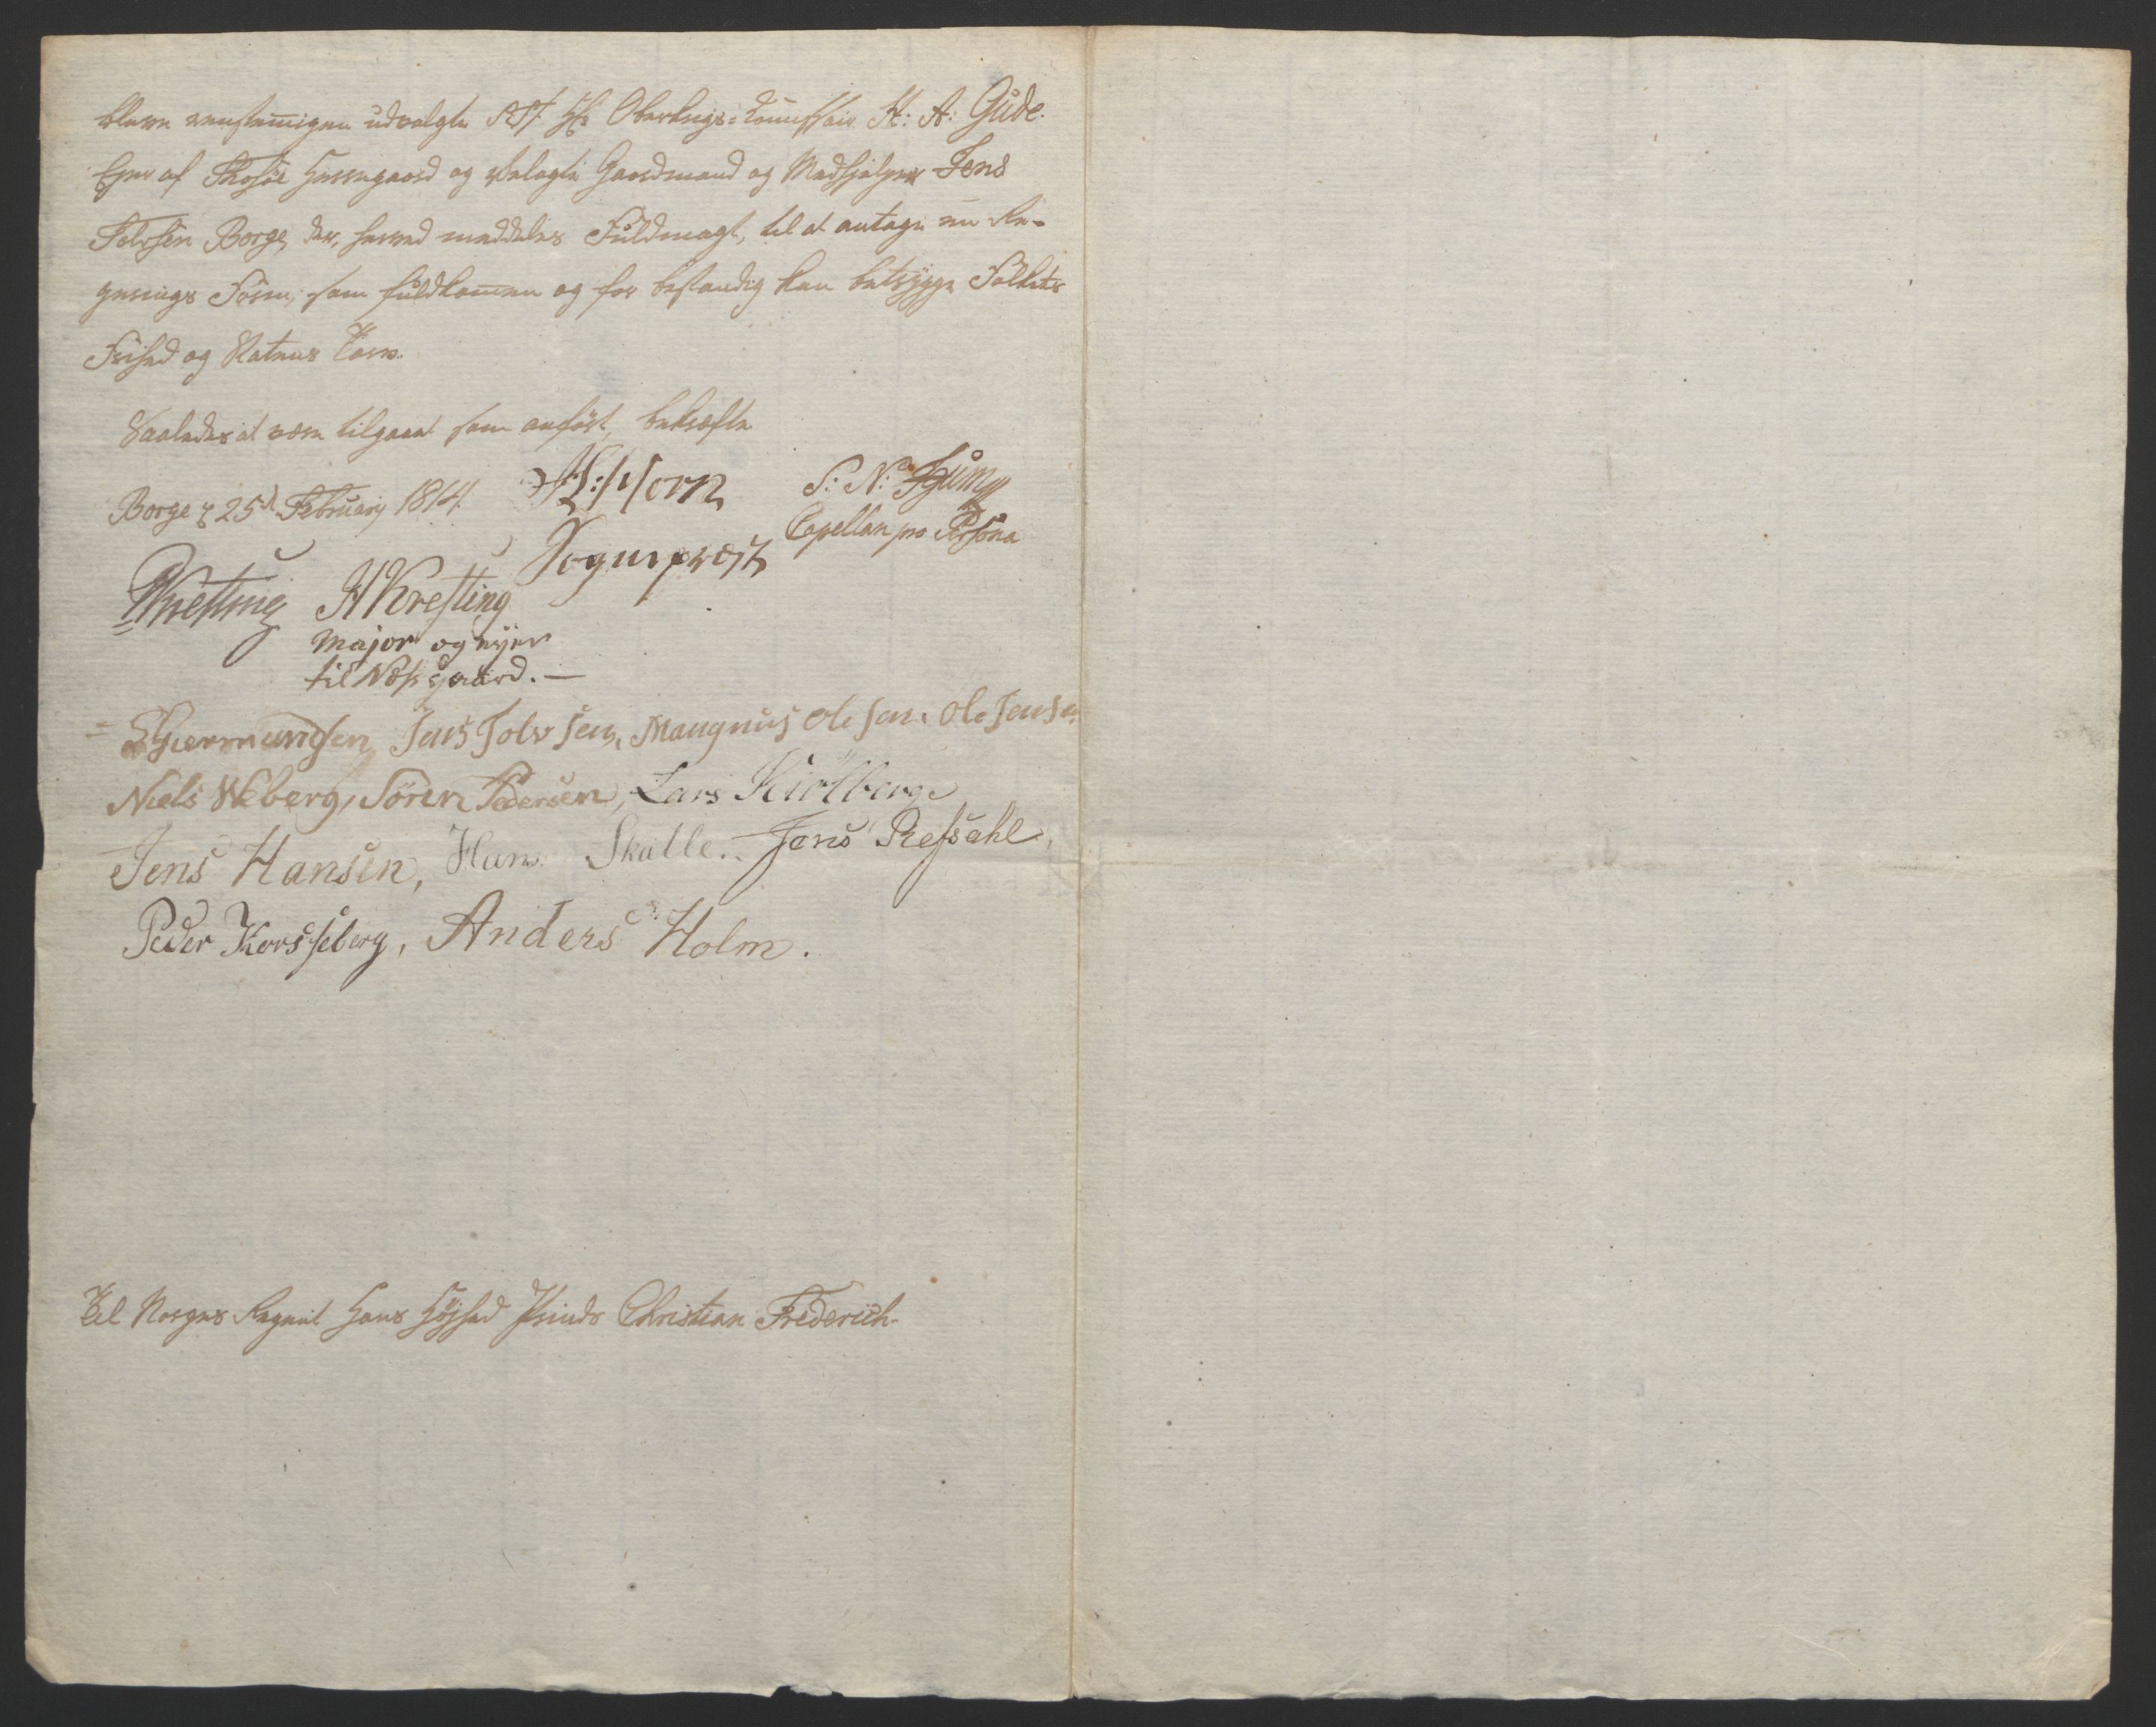 bleve eenstemmigen udvalgte S.T. Hr. Oberkrigs-Commissair H: A: Gude.
Eyer af Thosöe Herregaard og Gaardmand og Medhjælper Jens
Tolvsen Borge, der, herved meddeles Fuldmagt, til at antage en Re-
gierings Form, som fuldkommen og for bestandig kan betrygge Folkets
Frihed og Statens Tarv.
Saaledes at være tilgaaet som anfört, bekræfte
Borge d 25d February 1814.
Sogneprest
S: N:
Capellan pro Persona
Wresting H Kresting
Major og eyer
til Næsgaard. —
Giermundsen, Jens Tolvsen, Mangnus Olesen. Ole Jensen
Niels Weberg, Sören Pedersen, Lars Kiölberge
Jens Hansen, Hans Skalle. Jens Refsahl,
Peder Korsseberg, Anders Holm.
Til Norges Regent Hans Höjhed Prinds Christian Frederich.